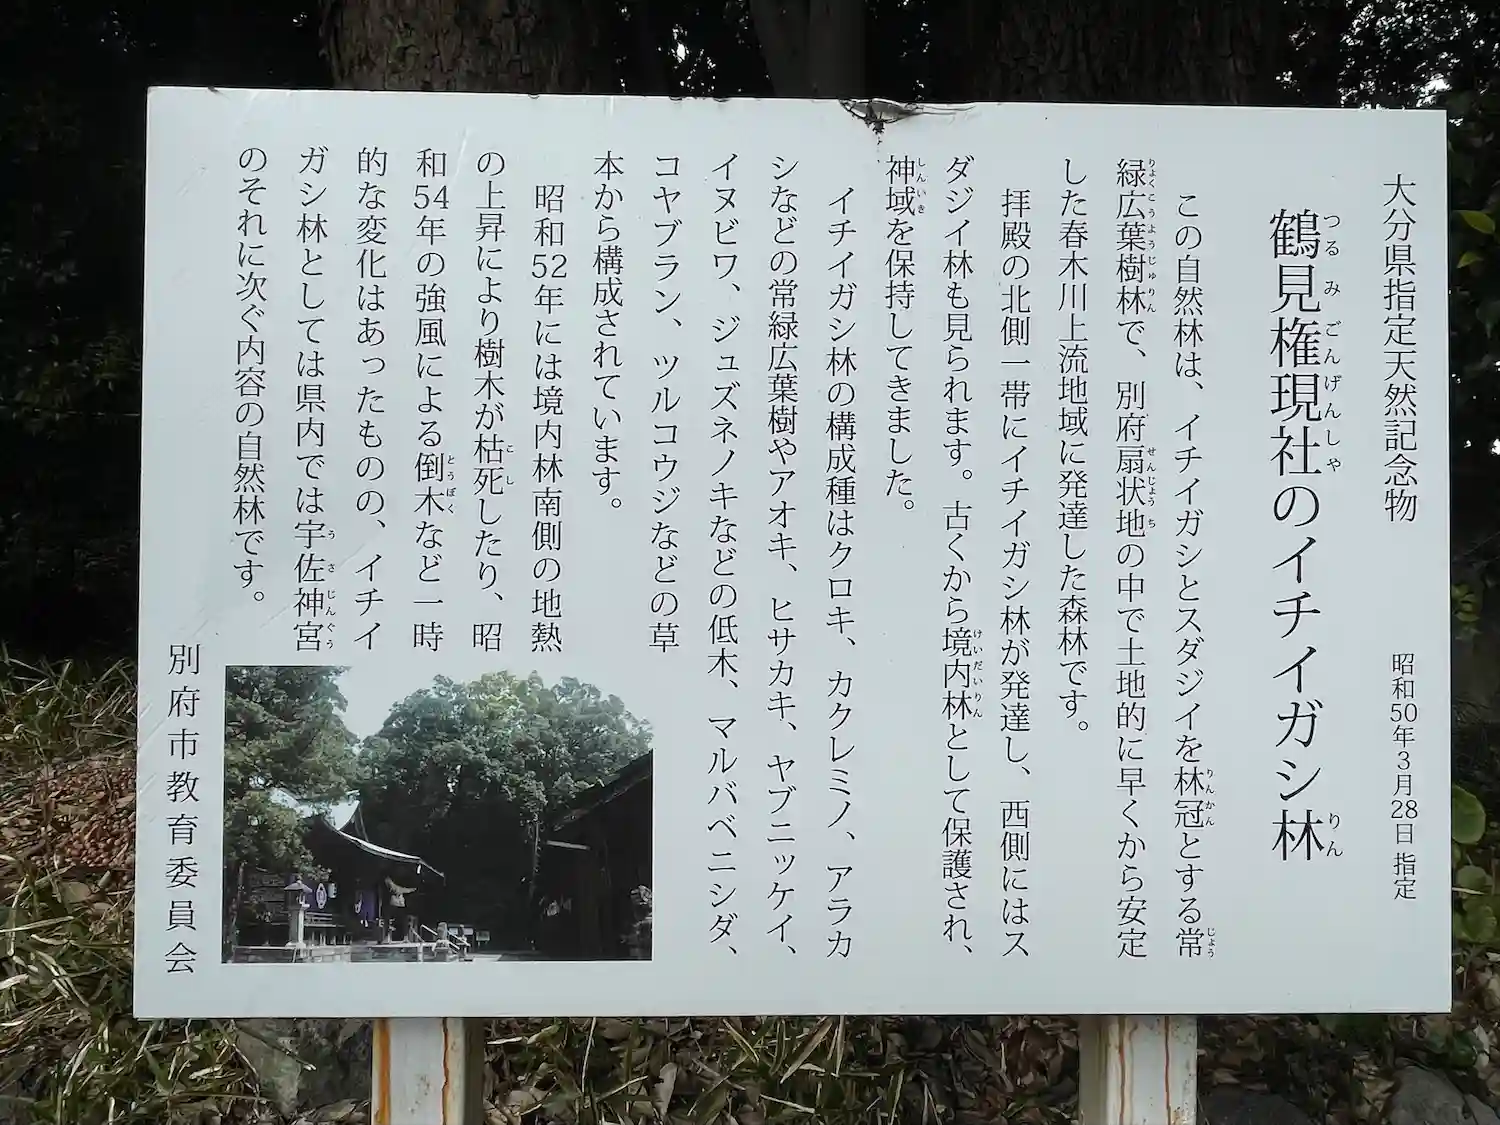 大分県指定天然記念物
昭和50年3月28日 指定
鶴見権現社のイチイガシ林
この自然林は、イチイガシとスダジイを林冠とする常
緑広葉樹林で、別府扇状地の中で土地的に早くから安定
した春木川上流地域に発達した森林です。
拝殿の北側一帯にイチイガシ林が発達し、西側にはス
ダジイ林も見られます。古くから境内林として保護され、
神域を保持してきました。
イチイガシ林の構成種はクロキ、カクレミノ、アラカ
シなどの常緑広葉樹やアオキ、ヒサカキ、ヤブニッケイ、
イヌビワ、ジュズネノキなどの低木、マルバベニシダ、
コヤブラン、ツルコウジなどの草
本から構成されています。
昭和52年には境内林南側の地熱
の上昇により樹木が枯死したり、昭
和54年の強風による倒木など一時
的な変化はあったものの、イチイ
ガシ林としては県内では宇佐神宮
のそれに次ぐ内容の自然林です。
別府市教育委員会